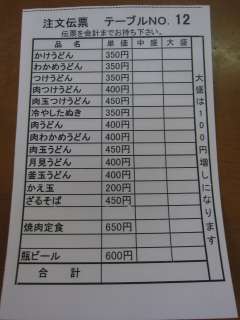 注文伝票 テーブルNO. 12
伝票を会計までお持ち下さい。
品名 単価 中盛 大盛
かけうどん 350円
わかめうどん 350円
つけうどん 350円
肉つけうどん 400円
肉玉つけうどん 450円
冷やしたぬき 350円
肉うどん 400円
肉わかめうどん 400円
肉玉うどん 450円
月見うどん 400円
釜玉うどん 400円
かえ玉 200円
ざるそば 450円
焼肉定食 650円
瓶ビール 600円
合計
大盛は100円増しになります